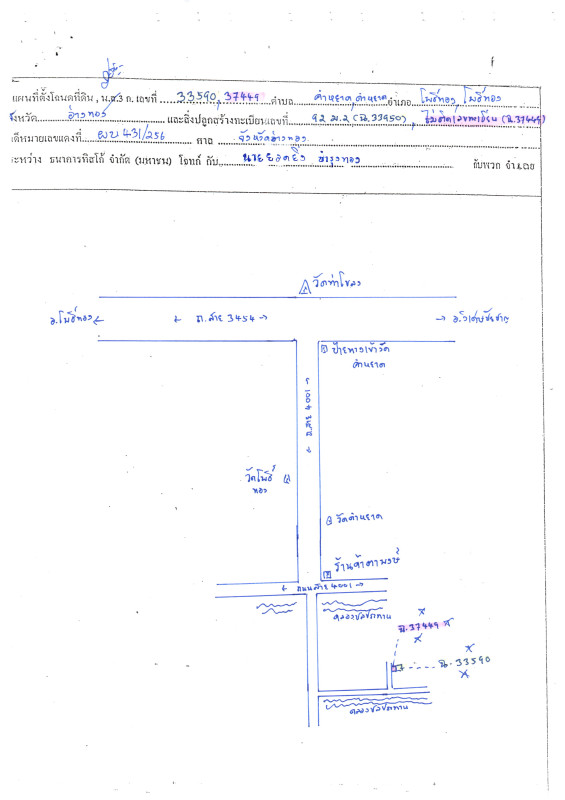 แผนที่ตั้งโฉนดที่ดิน , น.ส.3 ก. เลขที่ 33590, 37449 ตำบล คำหยาด, คำหยาด อำเภอ โพธิ์ทอง, โพธิ์ทอง
จังหวัด อ่างทอง และสิ่งปลูกสร้างทะเบียนเลขที่ 92 ม.2 (ฉ.33950), ไม่ติดเลขทะเบียน (ฉ.37449)
คดีหมายเลขแดงที่ ผบ 431/256 ศาล จังหวัดอ่างทอง
ระหว่าง ธนาคารทิสโก้ จำกัด (มหาชน) โจทก์ กับ นายยอดยิ่ง บำรุงทอง กับพวก จำเลย
วัดท่าโขลง
อ.โพธิ์ทอง ถ.สาย 3454 อ.วิเศษชัยชาญ
ป้ายทางเข้าวัด
คำหยาด
ถ.สาย 4001
วัดโพธิ์
ทอง
วัดคำหยาด
ร้านค้าดาพงษ์
ถนนสาย 4001
คลองชลประทาน
ฉ.37449
ฉ.33590
คลองชลประทาน